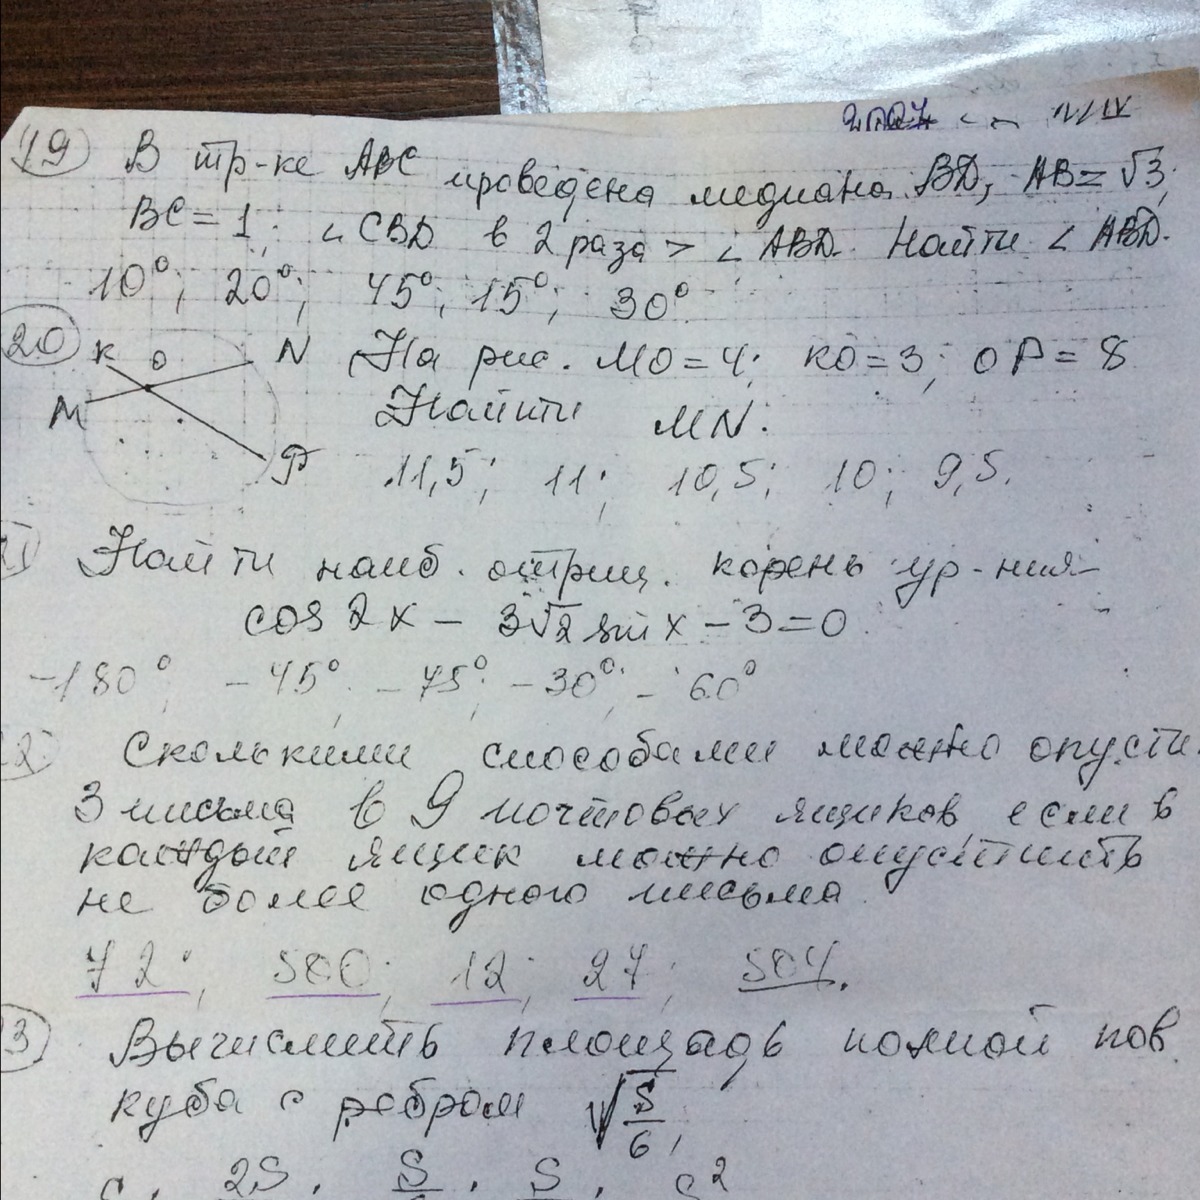 19 В тр-ке ABC проведена медиана BD, AB = √3;
BC = 1; ∠CBD в 2 раза > ∠ABD. Найти ∠ABD.
10°; 20°; 45°; 15°; 30°
20 На рис. MO = 4; KO = 3; OP = 8
K O N
M
P
Найти MN.
11,5; 11; 10,5; 10; 9,5.
Найти наиб. отриц. корень ур-ния
cos 2x - 3√2 sin x - 3 = 0
-180°; -45°; -75°; -30°; -60°
Сколькими способами можно опусти
3 письма в 9 почтовых ящиков, если в
каждый ящик можно опустить
не более одного письма.
72; 500; 12; 27; 504.
3 Вычислить площадь полной пов.
куба с ребром √S/6,
2S; S; S; S²